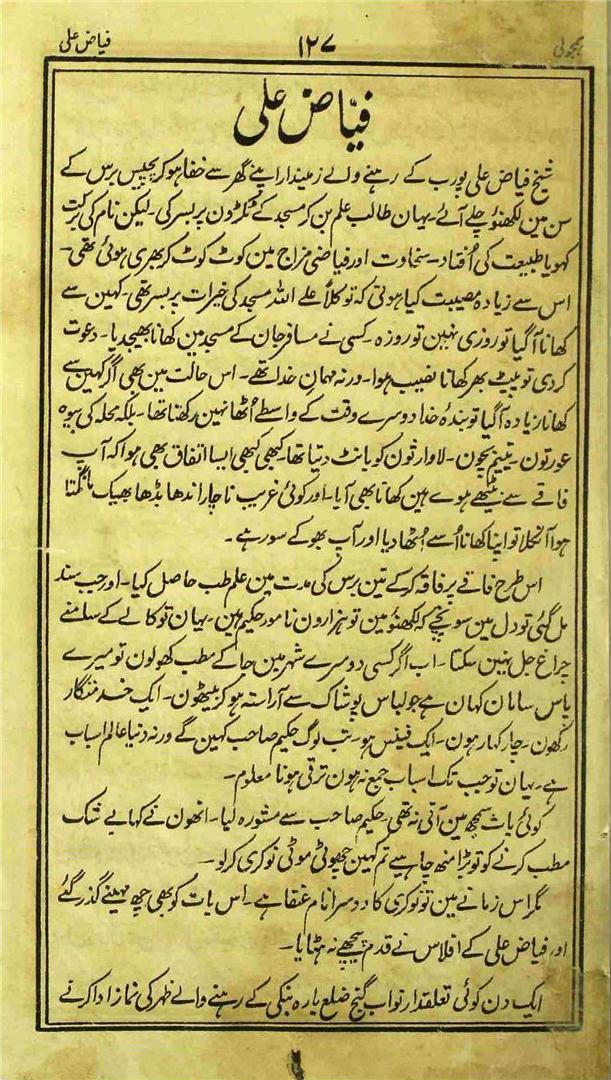 ہمجولی ۱۲۷ فیاض علی
فیّاض علی
شیخ فیاض علی پورب کے رہنے والے زمیندار اپنے گھر سے خفا ہو کر پچیس برس کے
سن مین لکھنؤ چلے آئے۔ یہان طالب علم بن کر مسجد کے ٹکڑون پر بسر کی۔ لیکن نام کی برکت
کہو یا طبیعت کی اُفتاد۔ سخاوت اور فیاضی مزاج مین کوٹ کوٹ کر بھری ہوئی تھی۔
اس سے زیادہ مصیبت کیا ہوتی کہ توکلاً علے اللہ مسجد کی خیرات پر بسر تھی۔ کہین سے
کھانا آ گیا تو روزی نہین تو روزہ۔ کسی نے مسافر جان کے مسجد مین کھانا بھیجدیا۔ دعوت
کر دی تو پیٹ بھر کھانا نصیب ہوا۔ ورنہ مہمانِ خدا تھے۔ اس حالت مین بھی اگر کہین سے
کھانا زیادہ آ گیا تو بندۂ خدا دوسرے وقت کے واسطے اُٹھا نہین رکھتا تھا۔ بلکہ محلہ کی بیوہ
عورتون۔ یتیم بچون۔ لاوارثون کو بانٹ دیتا تھا۔ کبھی کبھی ایسا اتفاق بھی ہوا کہ آپ
فاقے سے بیٹھے ہوے ہین کھانا بھی آیا۔ اور کوئی غریب ناچار اندھا بڈھا بھیک مانگتا
ہوا آنکلا تو اپنا کھانا اُسے اُٹھا دیا اور آپ بھوکے سو رہے۔
اس طرح فاقے پر فاقہ کرکے تین برس کی مدت مین علم طب حاصل کیا۔ اور جب سند
مل گئی تو دل مین سوچے کہ لکھنؤ مین تو ہزارون نامور حکیم ہین۔ یہان تو کالے کے سامنے
چراغ جل نہین سکتا۔ اب اگر کسی دوسرے شہر مین جا کے مطب کھولون تو میرے
پاس سامان کہان ہے جو لباس پوشاک سے آراستہ ہو کر بیٹھون۔ ایک خدمتگار
رکھون۔ چار کہار ہون۔ ایک فینس ہو۔ تب لوگ حکیم صاحب کہین گے ورنہ دنیا عالم اسباب
ہے۔ یہان تو جب تک اسباب جمع نہ ہون ترقی ہونا معلوم۔
کوئی بات سمجھ مین آتی نہ تھی حکیم صاحب سے مشورہ لیا۔ انھون نے کہا بے شک
مطب کرنے کو تو بڑا منھ چاہیے تم کہین چھوٹی موٹی نوکری کر لو۔
مگر اس زمانے مین تو نوکری کا دوسرا نام عنقا ہے۔ اس بات کو بھی چھ مہینے گذر گئے
اور فیاض علی کے افلاس نے قدم پیچھے نہ ہٹایا۔
ایک دن کوئی تعلقدار نواب گنج ضلع بارہ بنکی کے رہنے والے ظہر کی نماز ادا کرنے